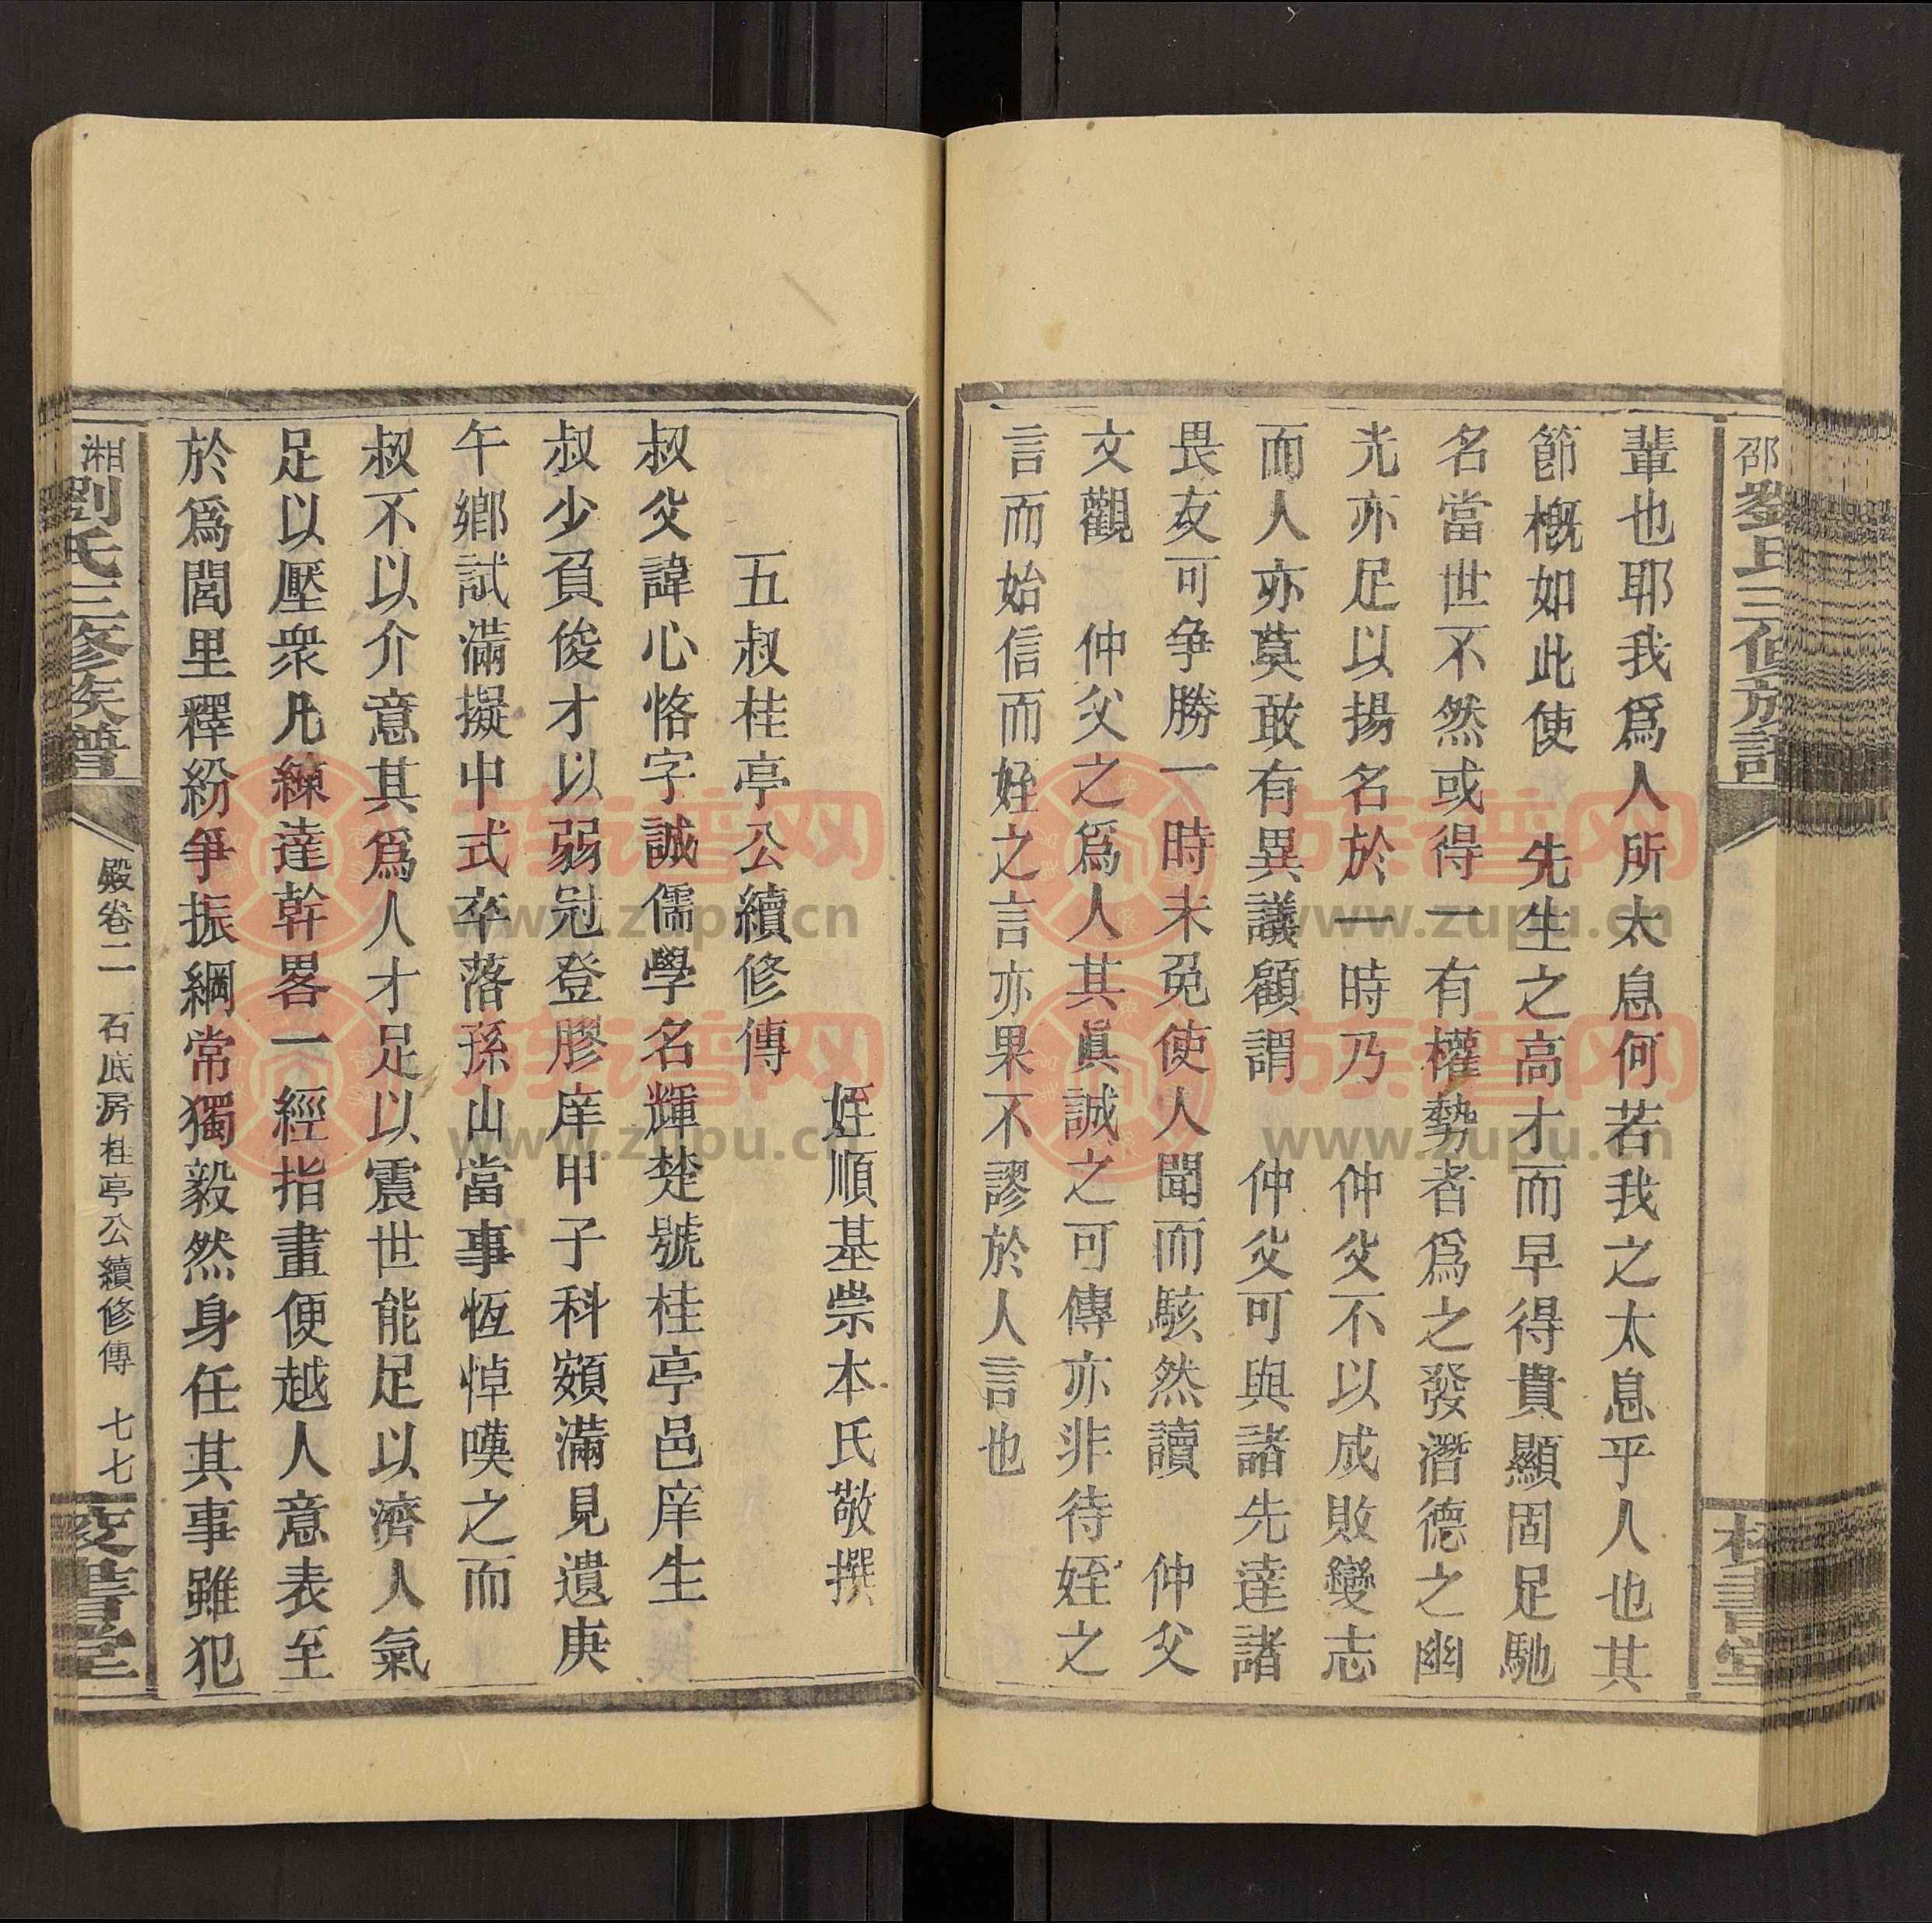 邵劉氏三修族譜
校書堂
輩也耶我爲人所太息何若我之太息乎人也其
節概如此使　先生之高才而早得貴顯固足馳
名當世不然或得一有權勢者爲之發潛德之幽
光亦足以揚名於一時乃　仲父不以成敗變志
而人亦莫敢有異議顧謂　仲父可與諸先達諸
畏友可争勝一時未免使人聞而駭然讀　仲父
文觀　仲父之爲人其眞誠之可傳亦非待姪之
言而始信而姪之言亦果不謬於人言也
姪順基崇本氏敬撰
五叔桂亭公續修傳
叔父諱心恪字誠儒學名輝楚號桂亭邑庠生
叔少負俊才以弱冠登膠庠甲子科額滿見遺庚
午鄉試滿擬中式卒落孫山當事恆悼嘆之而
叔不以介意其爲人才足以震世能足以濟人氣
足以壓衆凡練達幹畧一經指畫便越人意表至
於爲閭里釋紛爭振綱常獨毅然身任其事雖犯
湘劉氏三修族譜
殿卷二　石底房桂亭公續修傳　七七
校書堂
族谱网
www.zupu.cn
族谱网
www.zupu.cn
族谱网
www.zupu.cn
族谱网
www.zupu.cn